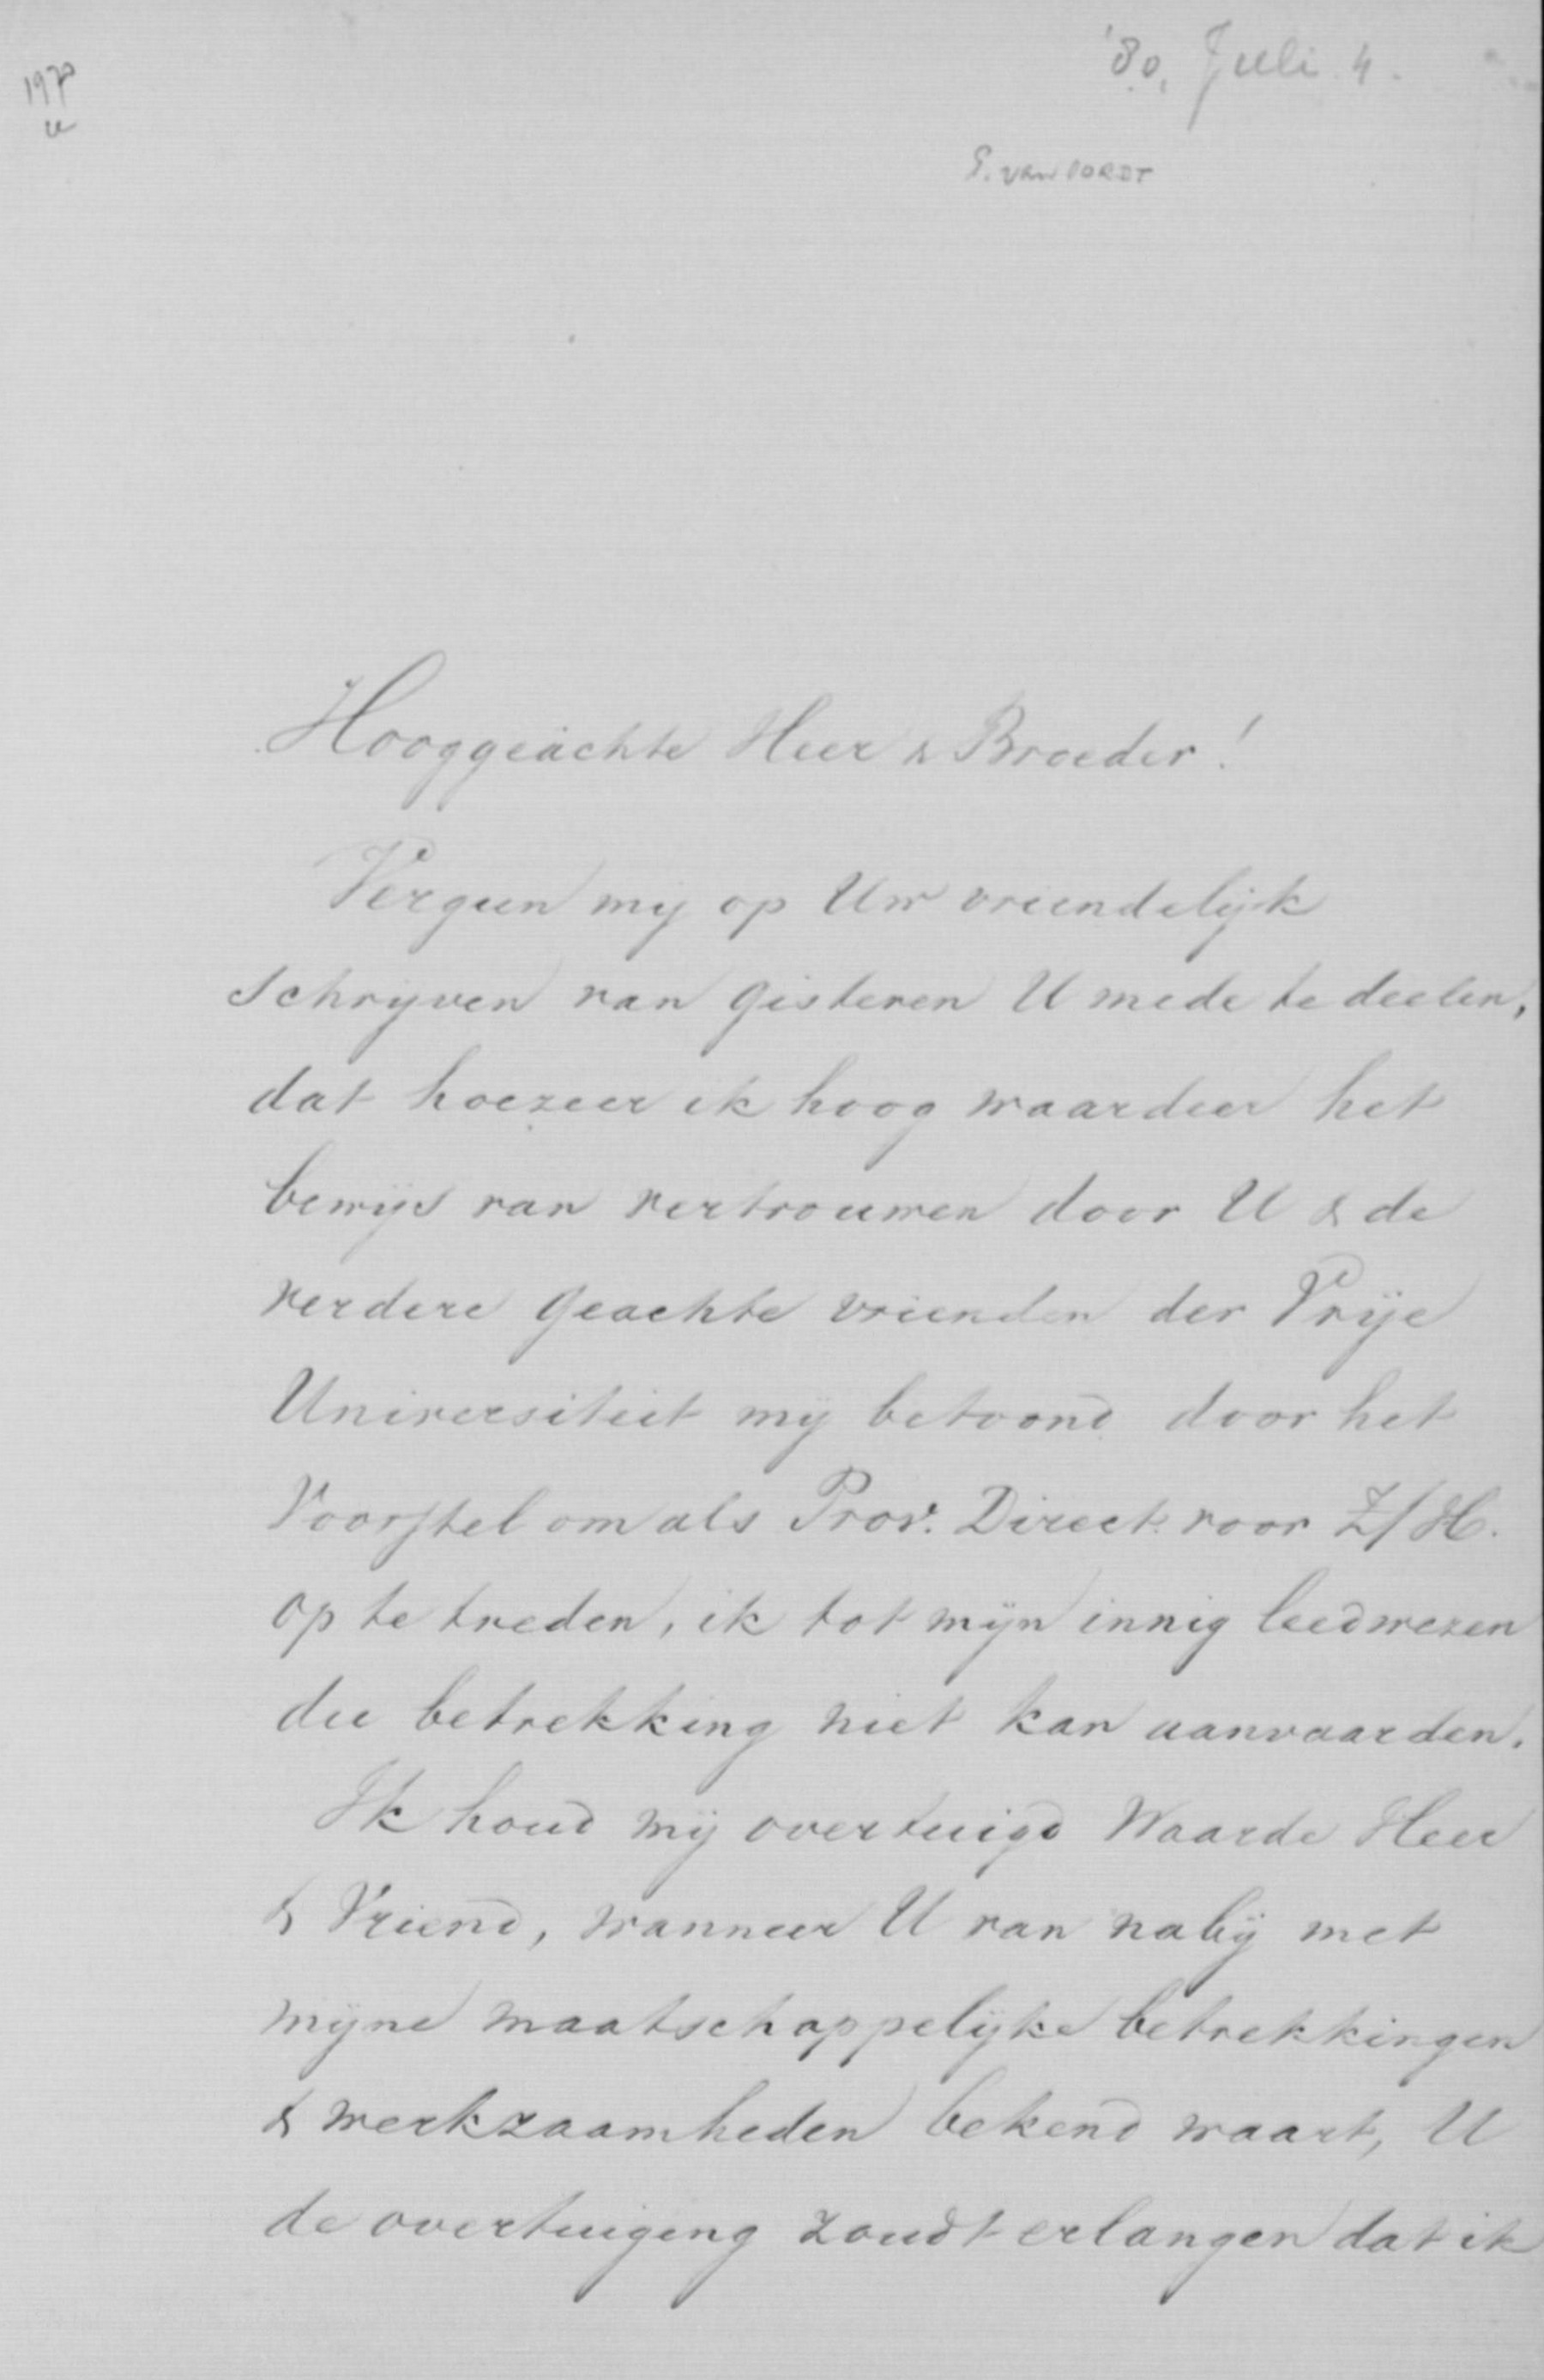 '80, Juli 4.
1970
G. VAN OORDT
Hooggeachte Heer & Broeder!
Vergun mij op Uw vriendelijk
schrijven van gisteren U mede te deelen,
dat hoezeer ik hoog waardeer het
bewijs van vertrouwen door U & de
verdere geachte vrienden der Vrije
Universiteit mij betoond door het
Voorstel om als Prov. Direct. voor Z/H.
op te treden, ik tot mijn innig leedwezen
die betrekking niet kan aanvaarden.
Ik houd mij overtuigd Waarde Heer
& Vriend, wanneer U van nabij met
mijne maatschappelijke betrekkingen
& werkzaamheden bekend waart, U
de overtuiging zoudt erlangen dat ik